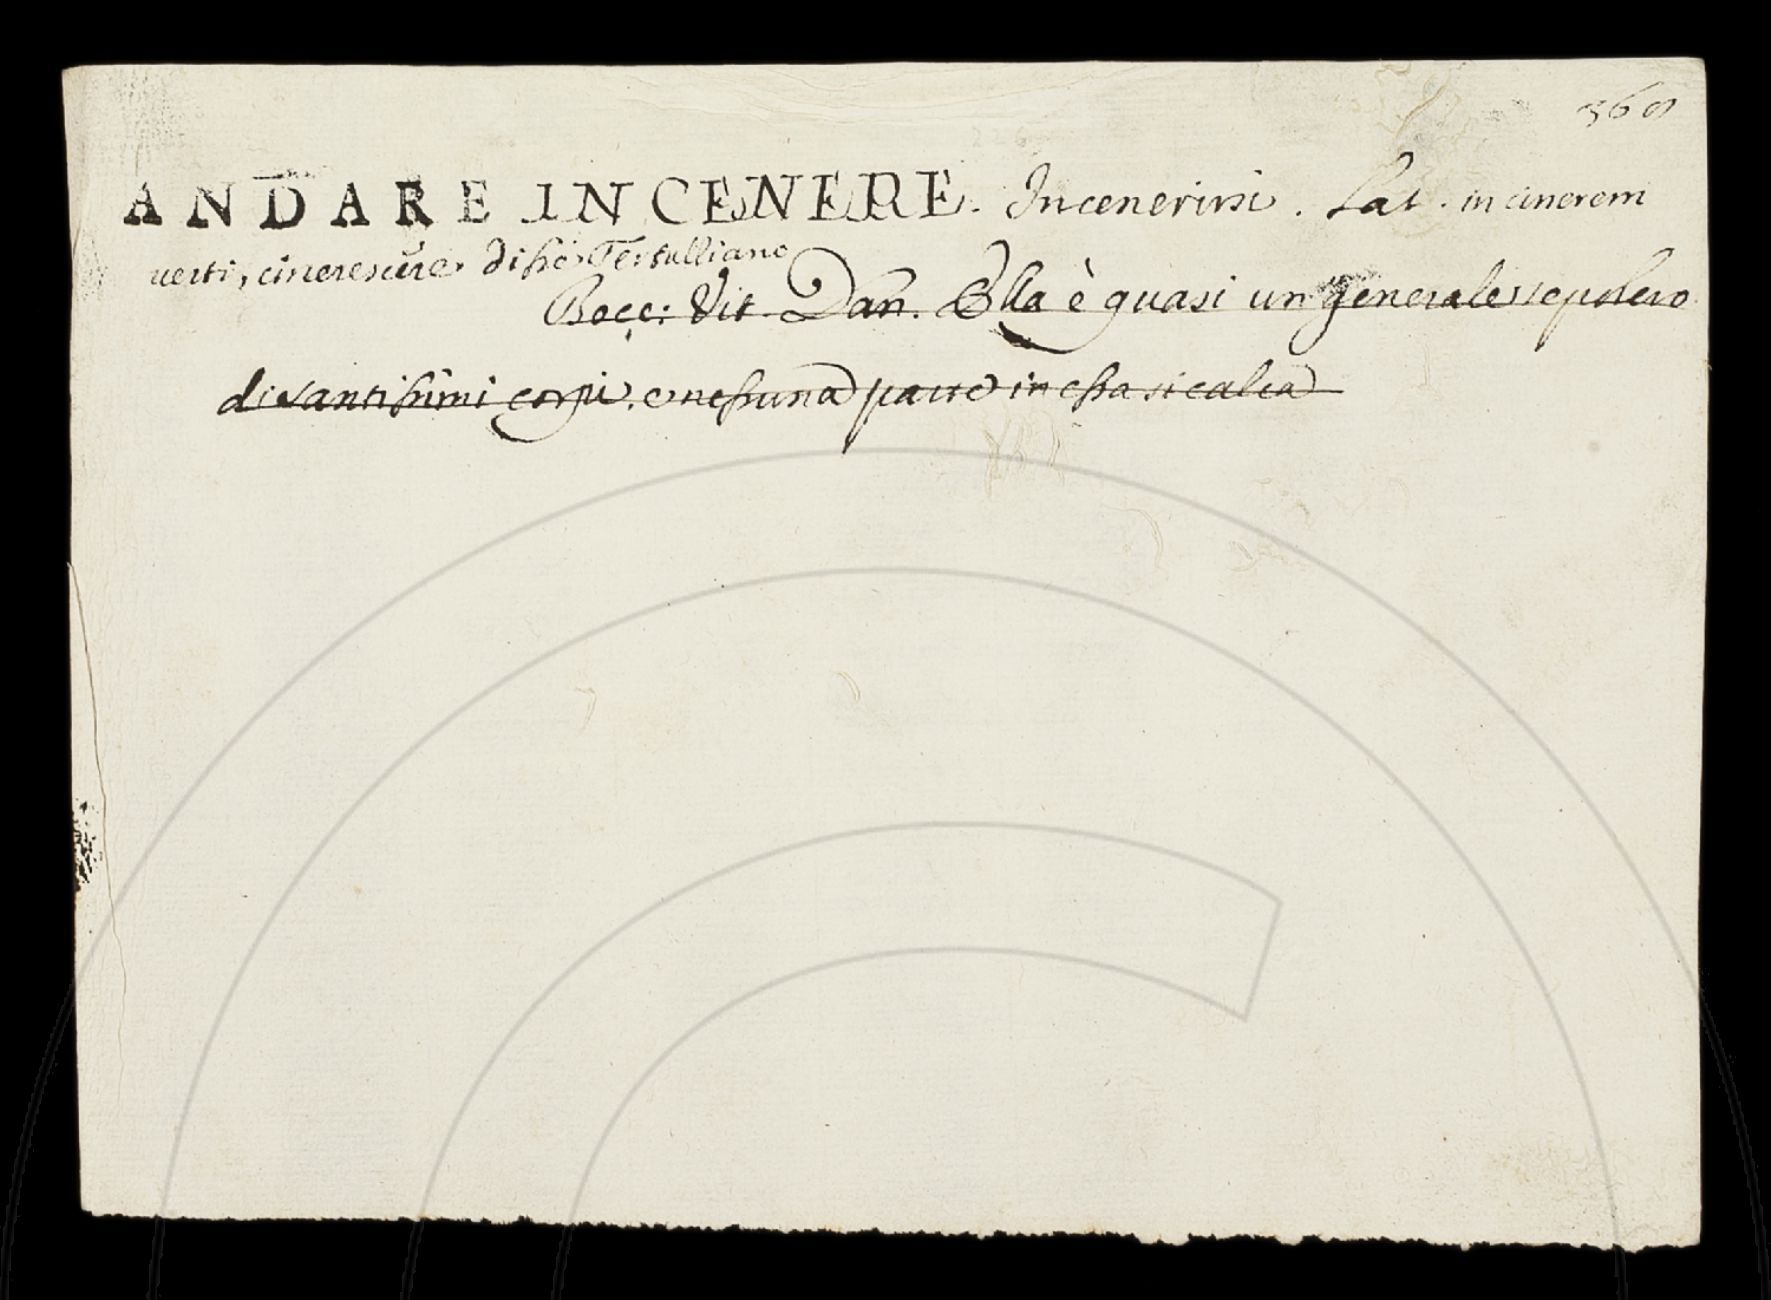 369
ANDARE IN CENERE. Incenerirsi. Lat. in cinerem
verti, cinerescere disse Tertulliano
Bocc. Vit. Dan. Ella è quasi un generale sepolcro
di santissimi corpi, e nessuna parte in essa si calca